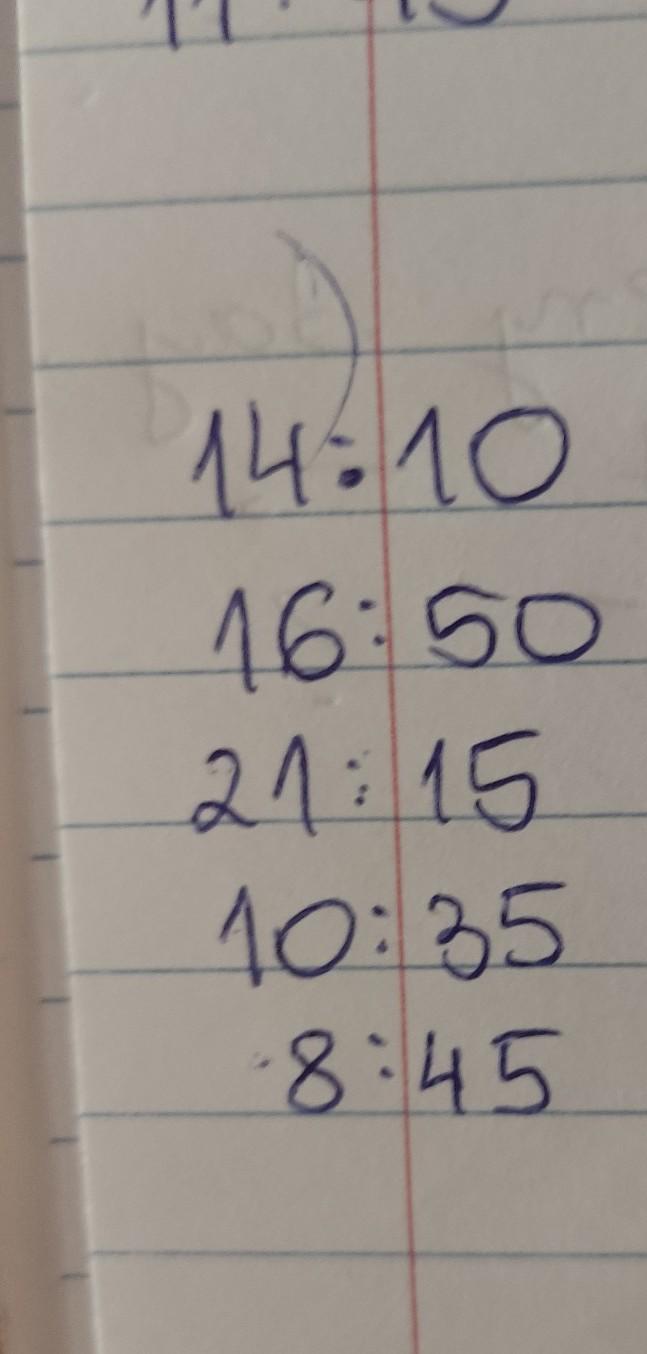 14:10
16:50
21:15
10:35
8:45